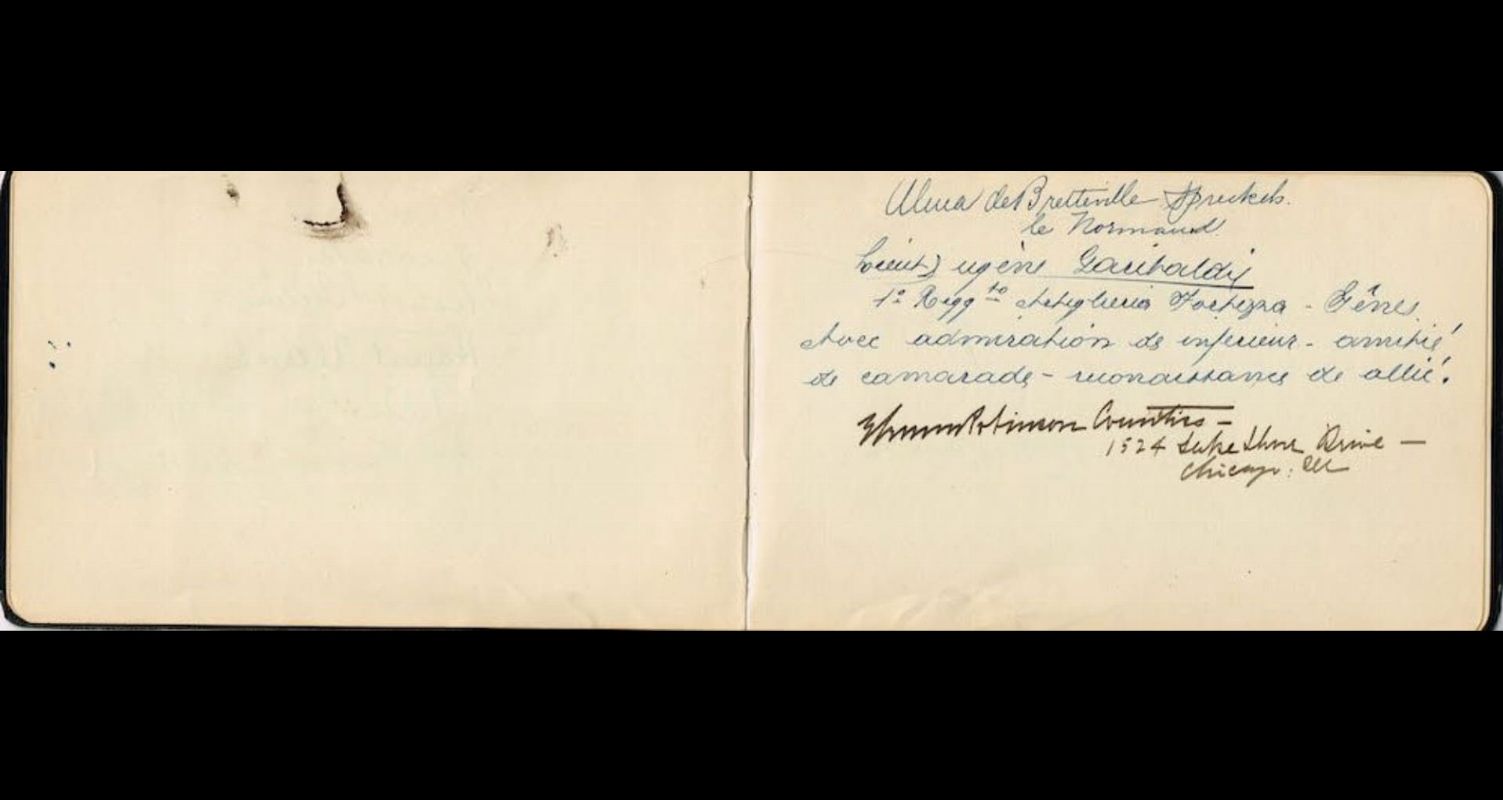 Alma de Bretteville Spreckels.
le Normand.
Lieut Eugène Garibaldi
1º Regg to Artiglieria Fortezza - Gênes
Avec admiration de inferieur - amitié
de camarade - reconaissance de allié.
Robinson
1524 Lake Shore Drive —
Chicago. Ill